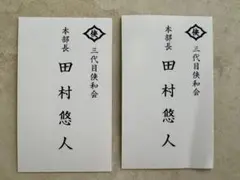 俠
三代目俠和会
本部長
田村悠人
俠
三代目俠和会
本部長
田村悠人